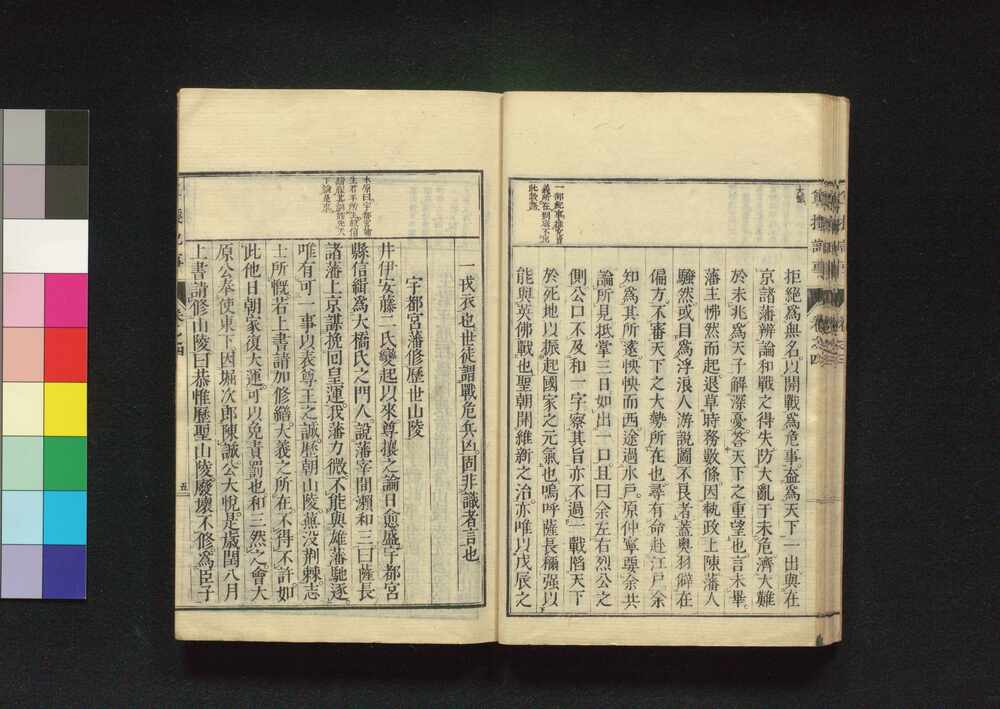 拒絕爲無名以開戰爲危事盍爲天下一出與在
京諸藩辨論和戰之得失防大亂于未危濟大難
於未兆爲天子解深憂答天下之重望也言未畢
藩主怫然而起退草時務數條因執政上陳藩人
騷然或目爲浮浪人游說圖不良者蓋奧羽僻在
偏方不審天下之大勢所在也尋有命赴江戶余
知爲其所遠怏怏而西途過水戶原仲寧要余共
論所見抵掌三日如出一口且曰余左右烈公之
側公口不及和一字察其旨亦不過一戰陷天下
於死地以振起國家之元氣也嗚呼薩長雖强以
能與英佛戰也聖朝開維新之治亦唯以戊辰之
一戎衣也世徒謂戰危兵凶固非識者言也
宇都宮藩修歷世山陵
井伊安藤二氏變起以來尊攘之論日愈盛宇都宮
縣信緝爲大橋氏之門人說藩宰間瀨和三曰薩長
諸藩上京謀挽回皇運我藩力微不能與雄藩馳逐
唯有可一事以表尊王之誠歷朝山陵蕪沒荆棘志
士所慨若上書請加修繕大義之所在不得不許如
此他日朝家復大運可以免責罰也和三然之會大
原公奉使東下因堀次郎陳誠公大悅是歲閏八月
上書請修山陵曰恭惟歷聖山陵廢壞不修爲臣子
五